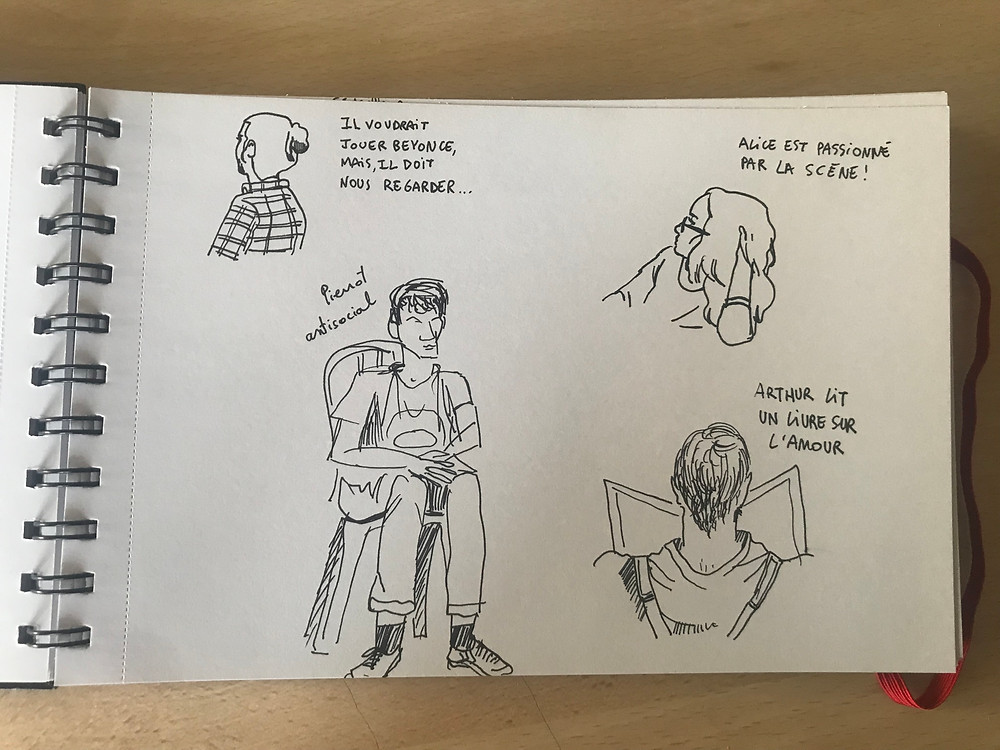 IL VOUDRAIT
JOUER BEYONCE,
MAIS, IL DOIT
NOUS REGARDER...
ALICE EST PASSIONNÉ
PAR LA SCÈNE !
Pierrot
antisocial
ARTHUR LIT
UN LIVRE SUR
L'AMOUR